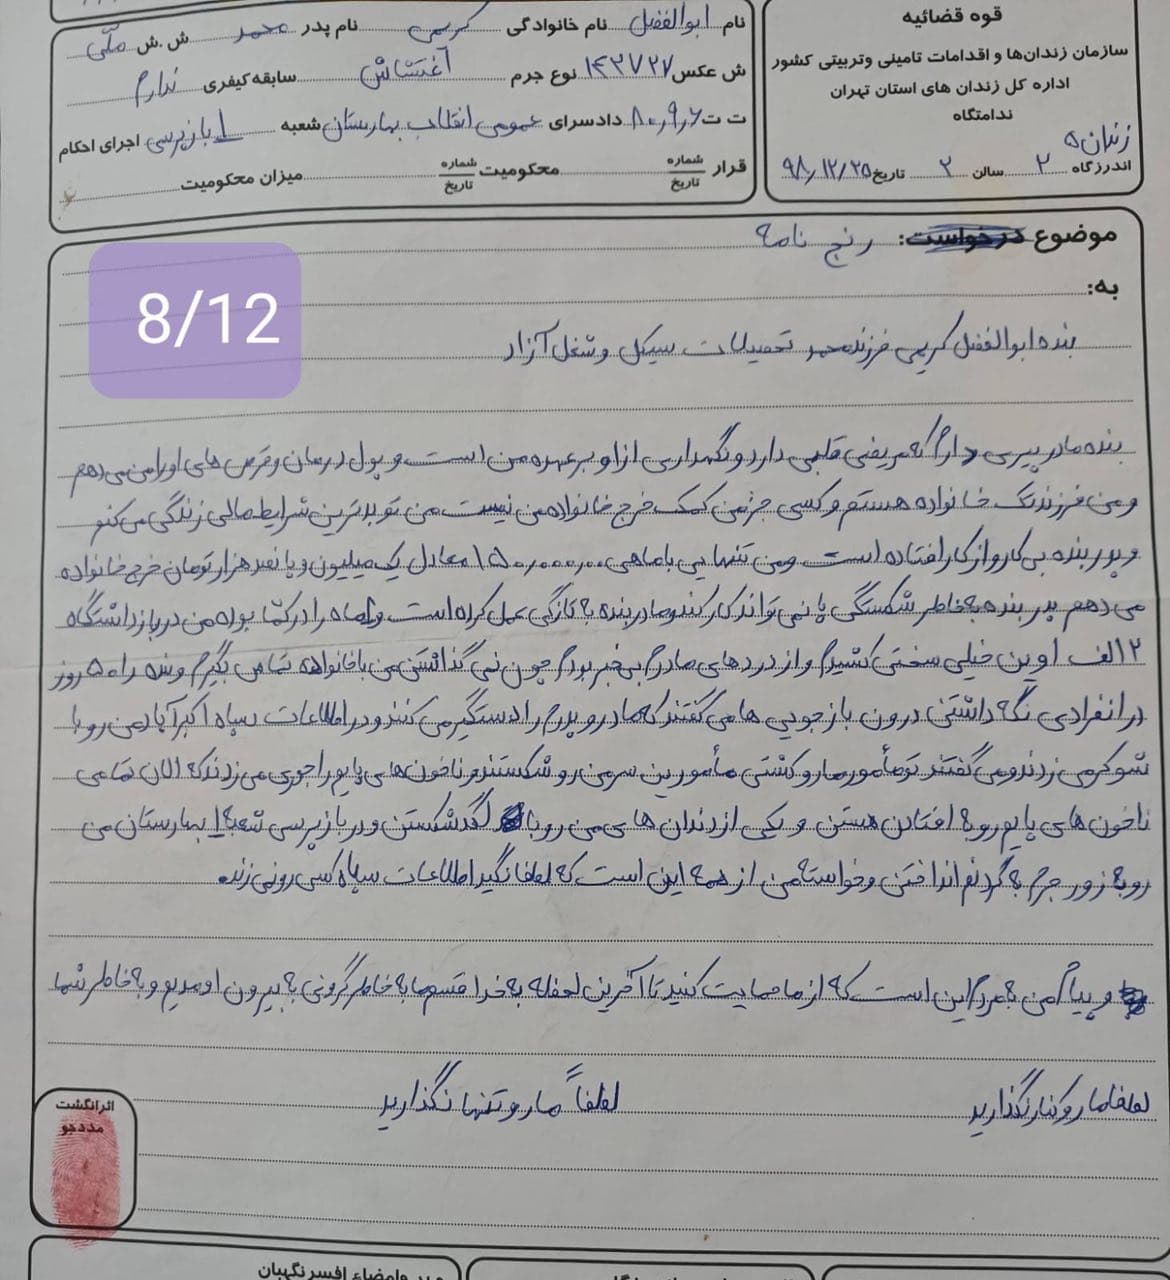 قوه قضائیه
سازمان زندان‌ها و اقدامات تامینی وتربیتی کشور
اداره کل زندان های استان تهران
ندامتگاه
زندان ۵
اندرزگاه ۲ سالن ۲ تاریخ ۹۸/۱۲/۲۵
نام ابوالفضل نام خانوادگی کریمی نام پدر محمد ش.ش ملّی
ش عکس ۱۴۳۷۲۷ نوع جرم اغتشاش سابقه کیفری ندارم
ت ت ۸۰،۹،۶ دادسرای عمومی انقلاب بهارستان شعبه ۱ بازپرسی اجرای احکام
قرار شماره تاریخ محکومیت شماره تاریخ میزان محکومیت
موضوع درخواست: رنج نامه
به:
8/12
بنده ابوالفضل کریمی فرزند محمد تحصیلات سیکل و شغل آزاد
بنده مادر پیری دارم که مریضی قلبی دارد و نگهداری از او بر عهده من است و پول درمان و قرص های او را من می دهم
و من فرزند تک خانواده هستم و کسی جز من کمک خرج خانواده من نیست من تو بدترین شرایط مالی زندگی می کنم
و پدر بنده بی کار و از کار افتاده است و من تنهایی با ماهی ۱۵۰۰۰۰۰۰ معادل یک میلیون و پانصد هزار تومان خرج خانواده
می دهم پدر بنده به خاطر شکستگی پا نمی تواند کار کند و مادر بنده به تازگی عمل کرده است و ماه را در کما بوده من در بازداشتگاه
۲الف اوین خیلی سختی کشیدم و از درد های مادرم بی خبر بودم چون نمی گذاشتن من با خانواهه تماس بگیرم و بنده را ۵۰ روز
در انفرادی نگه داشتن درون بازجویی ها می گفتند که مادر و پدرم را دستگیر می کنند و در اطلاعات سپاه اکبرآباد من رو با
شوکر می زدند و می گفتند تو مأمور مارو کشتی مأمورین سر من رو شکستند و ناخون های پایم را جوری می زدند که الان تمامی
ناخون های پایم رو به افتادن هستن و یکی از دندان های من رو با لگد شکستن و در بازپرسی شعبه ۱ بهارستان من
رو به زور جرم به گردنم انداختن و خواسته من از همه این است که لطفا نگید اطلاعات سپاه کسی رو نمی زند.
و پیام من به مردم این است که از ما حمایت کنید تا آخرین لحظه به خدا قسم ما به خاطر گرونی به بیرون اومدیم و به خاطر شما
لطفا مارو کنار نگذارید لطفاً مارو تنها نگذارید
اثر انگشت
مددجو
مهر وامضاء افسر نگهبان